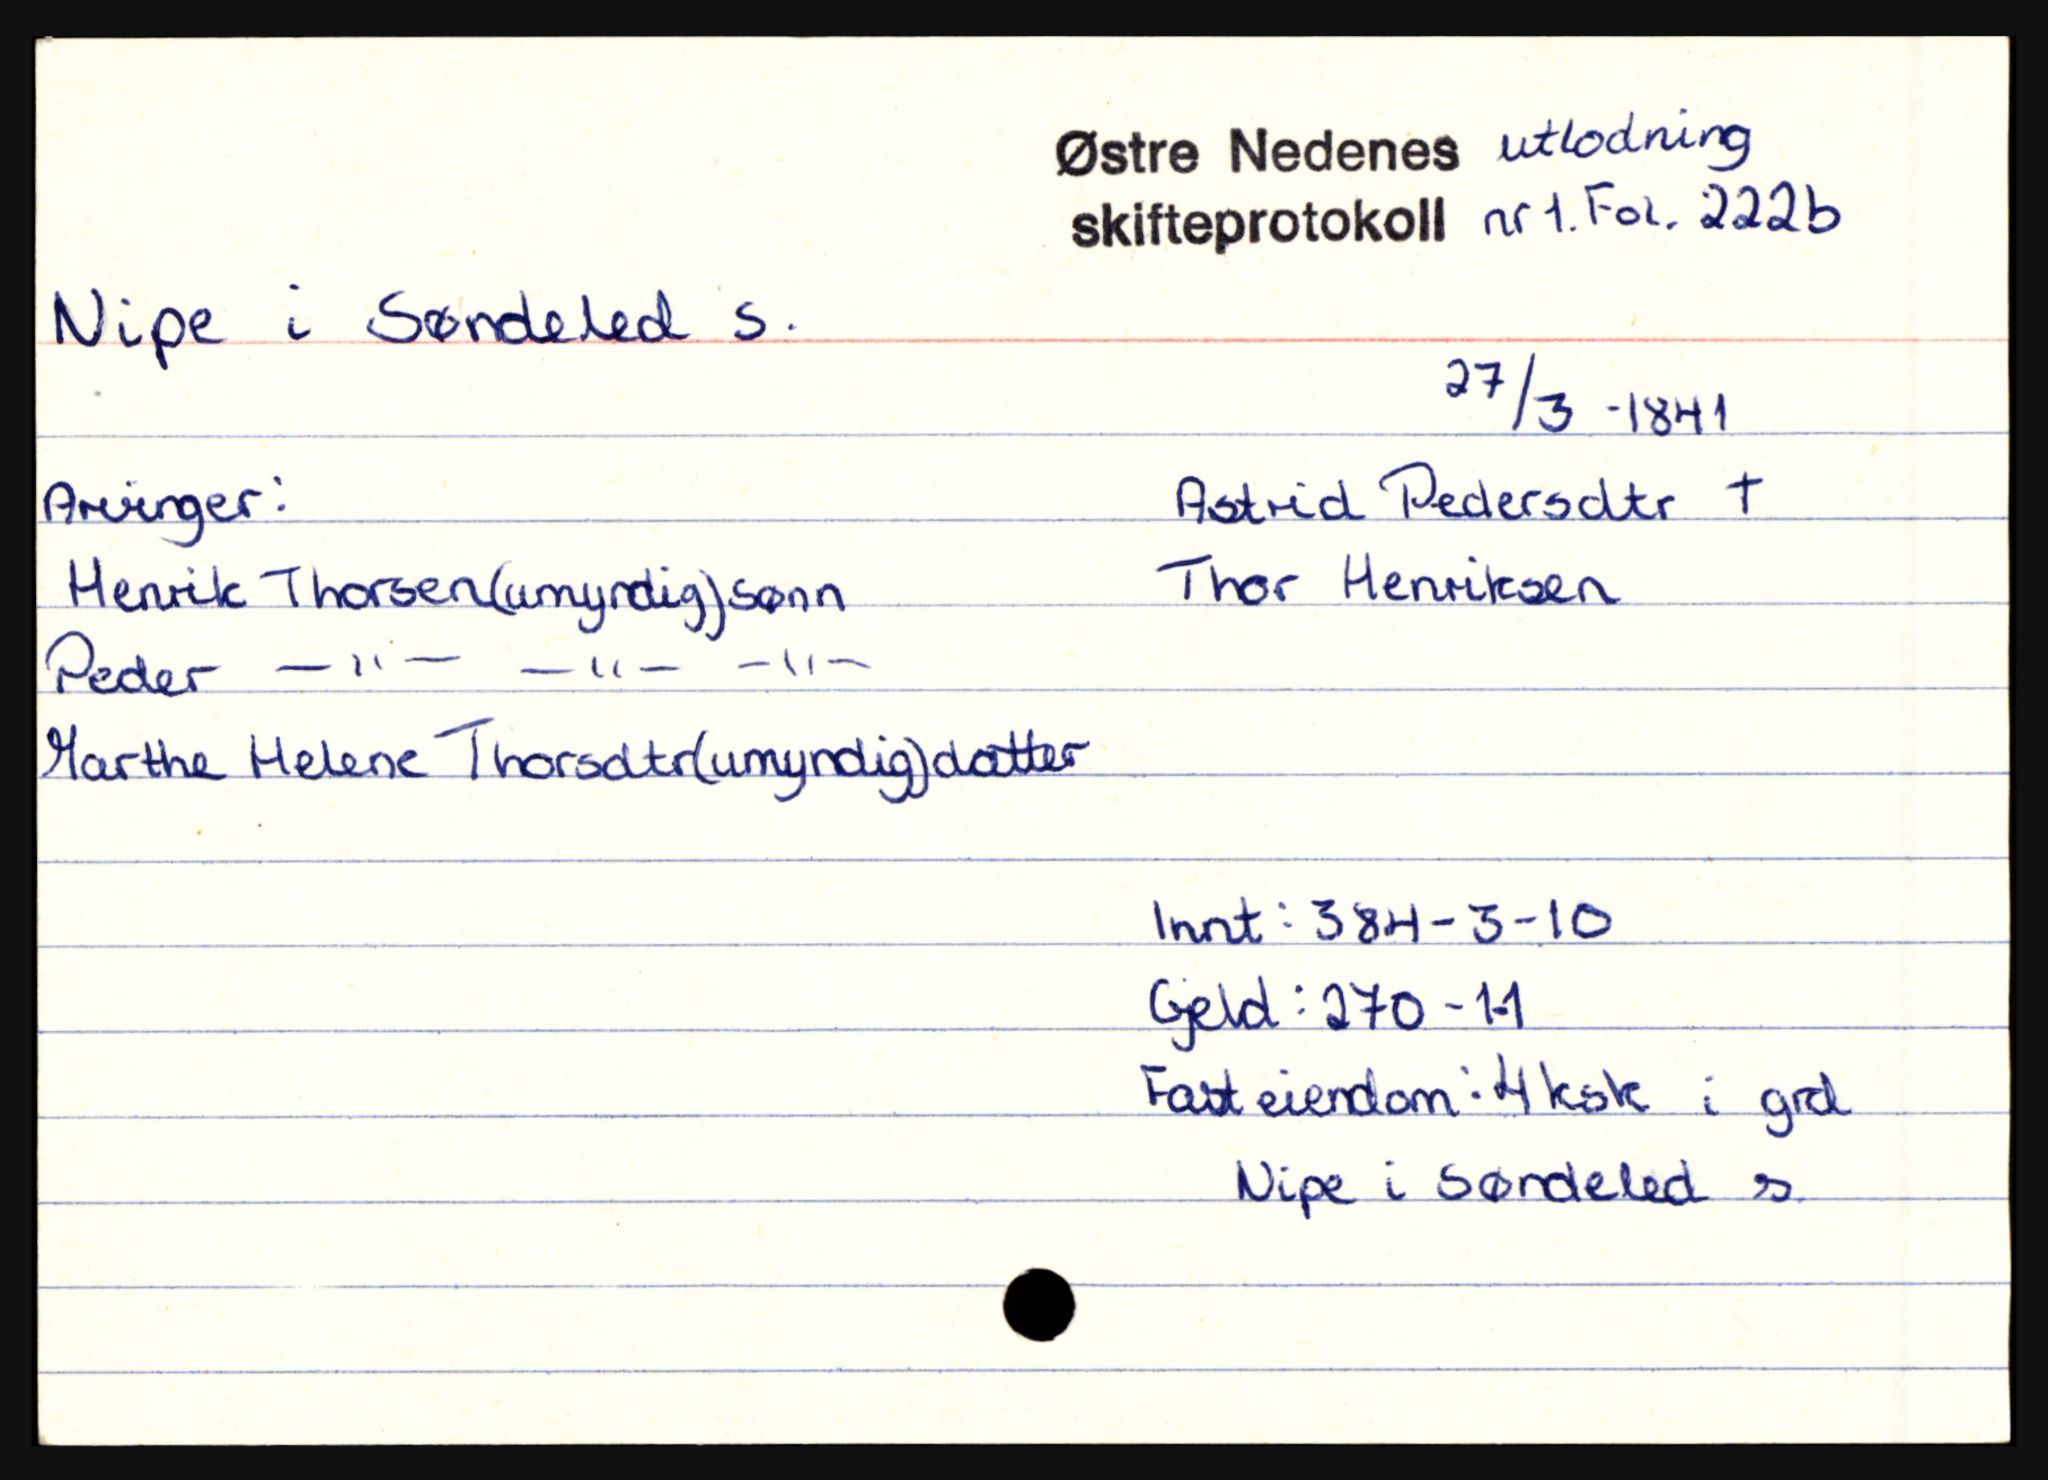 Østre Nedenes utlodning
skifteprotokoll nr 1. Fol. 222b
Nipe i Søndeled s.
27/3 -1841
Arvinger:
Astrid Pedersdtr †
Henrik Thorsen (umyndig) sønn
Thor Henriksen
Peder —"— —"— —"—
Marthe Helene Thorsdtr (umyndig) datter
Innt: 384-3-10
Gjeld: 270-1-1
Fast eiendom: 4 ksk i grd
Nipe i Søndeled s